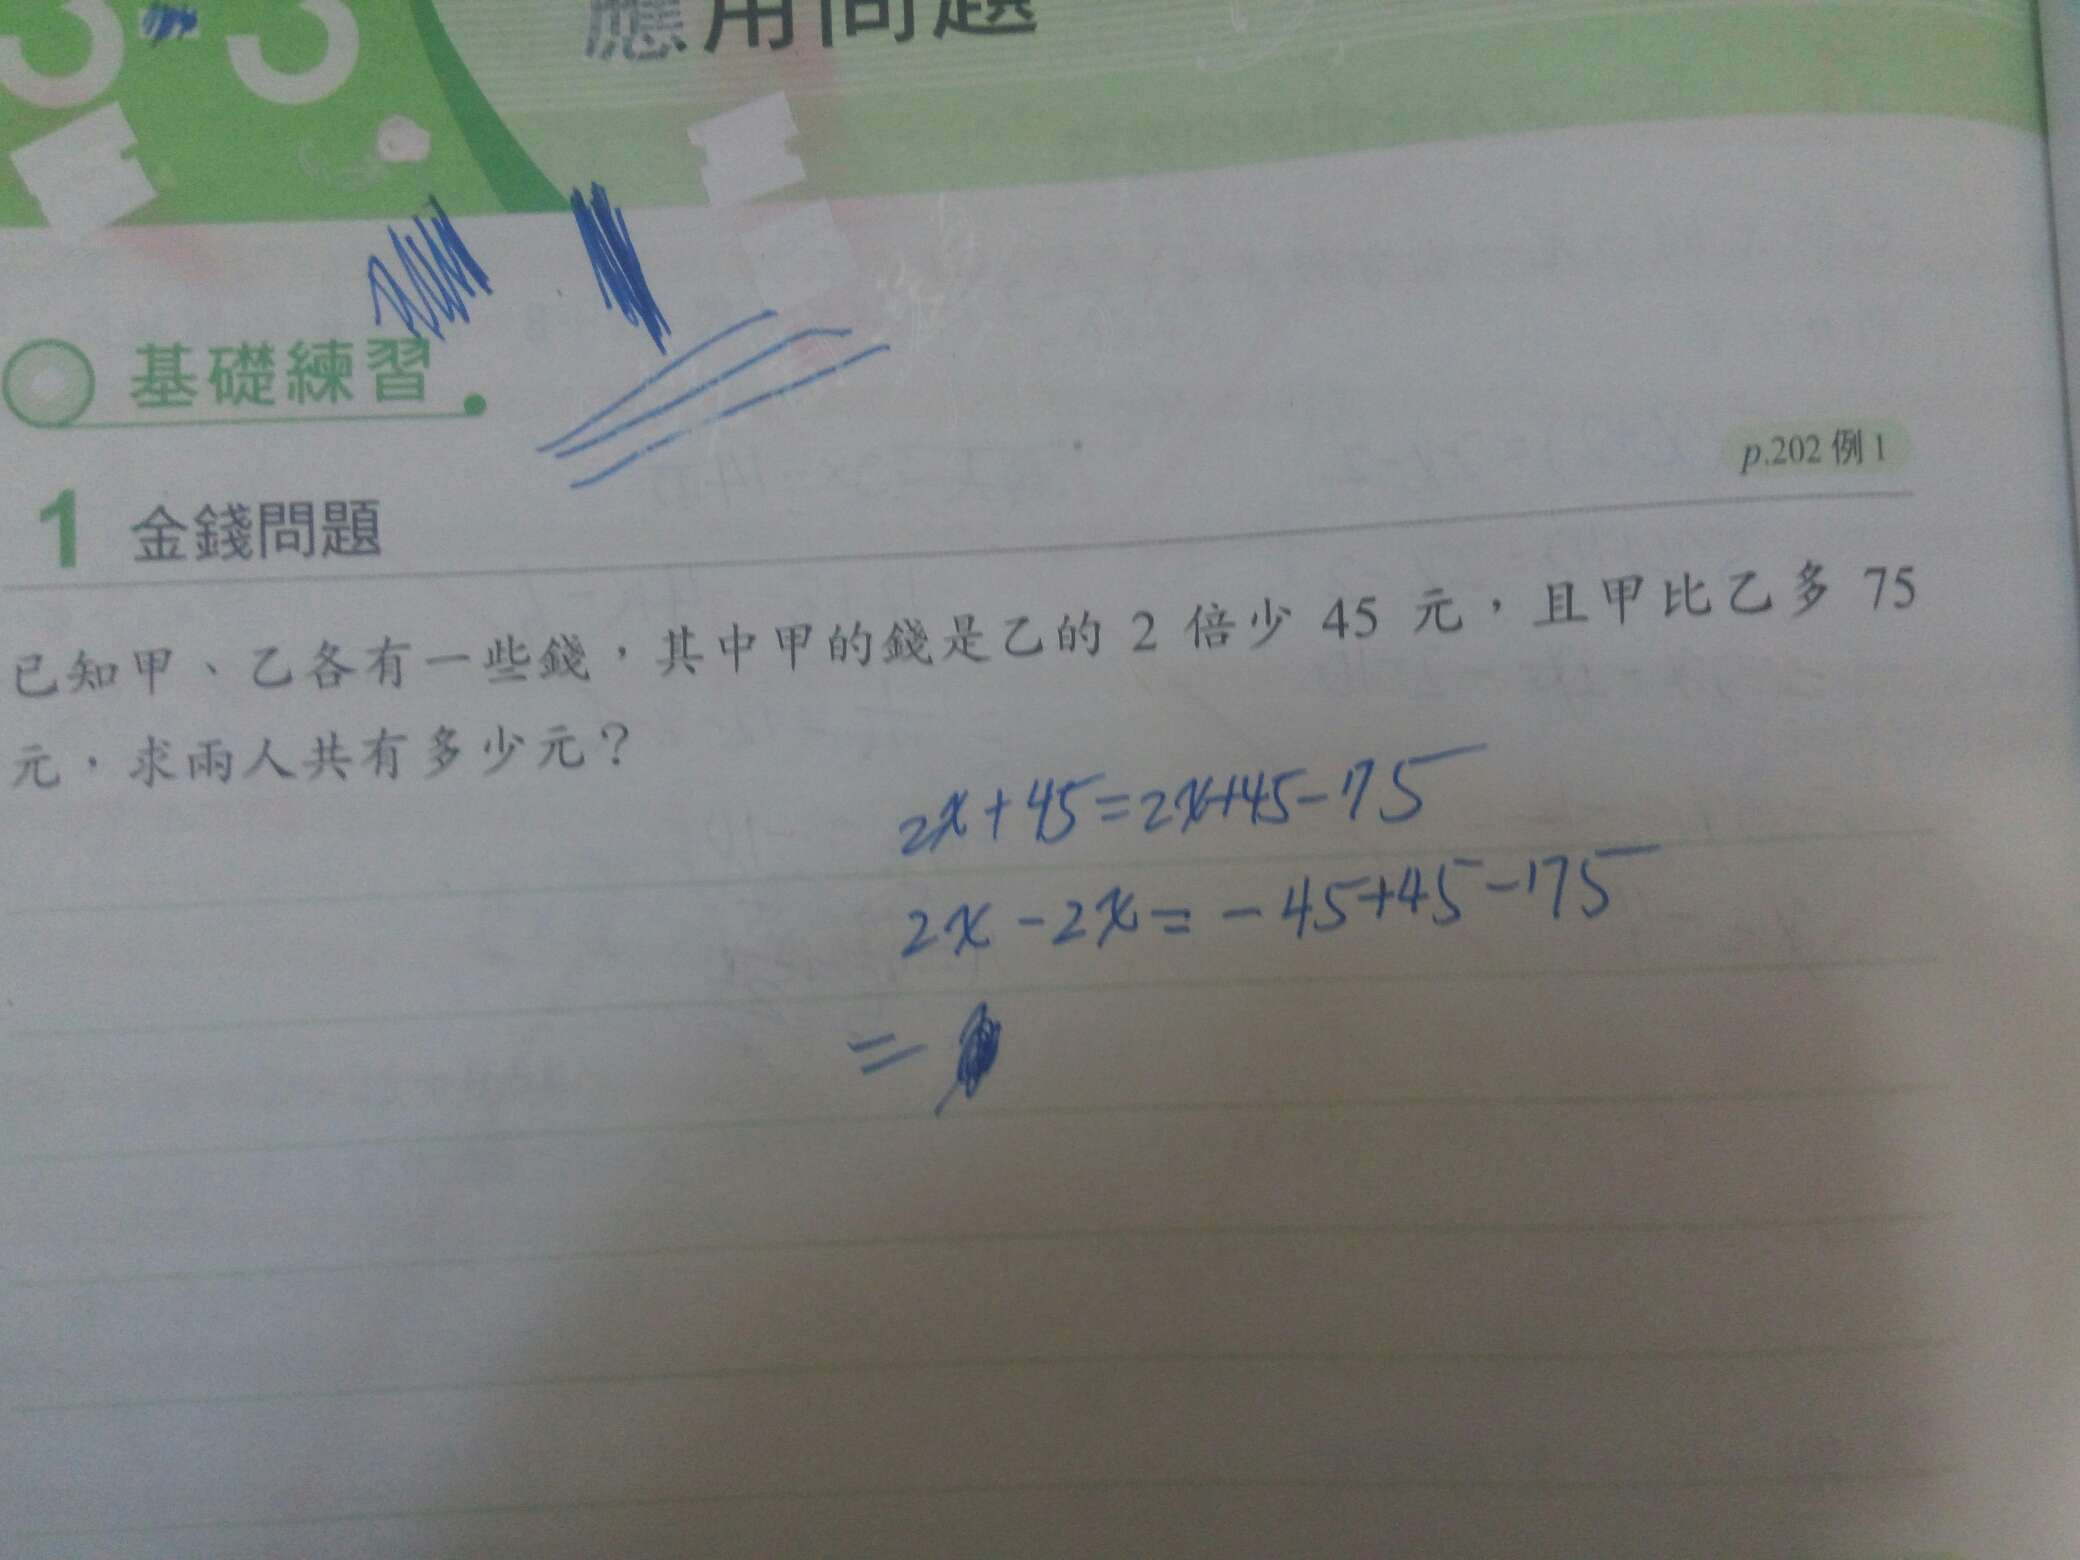 3-3 應用問題
基礎練習
p.202 例 1
1 金錢問題
已知甲、乙各有一些錢，其中甲的錢是乙的 2 倍少 45 元，且甲比乙多 75
元，求兩人共有多少元？
2x+45=2x+45-75
2x-2x=-45+45-175
=